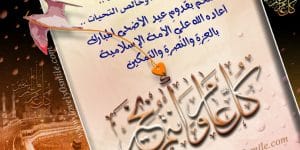 وخالص التحيات ..
بقدوم عيد الأضحى المبارك
اعاده الله على الأمة الإسلامية
بالعزة والنصرة والتمكين
كل عام وأنتم بخير